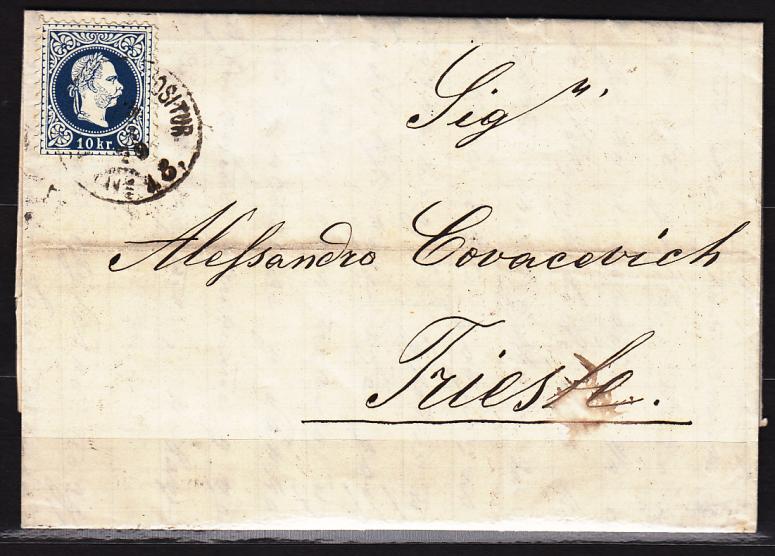 10 kr.
OSITUR
18.
Sig.r
Alessandro Covacevich
Trieste.